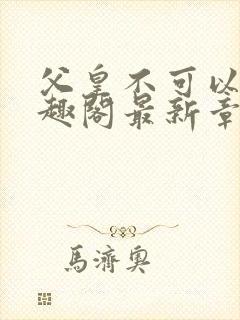 父皇不可以
趣阁最新章
馬濟奧